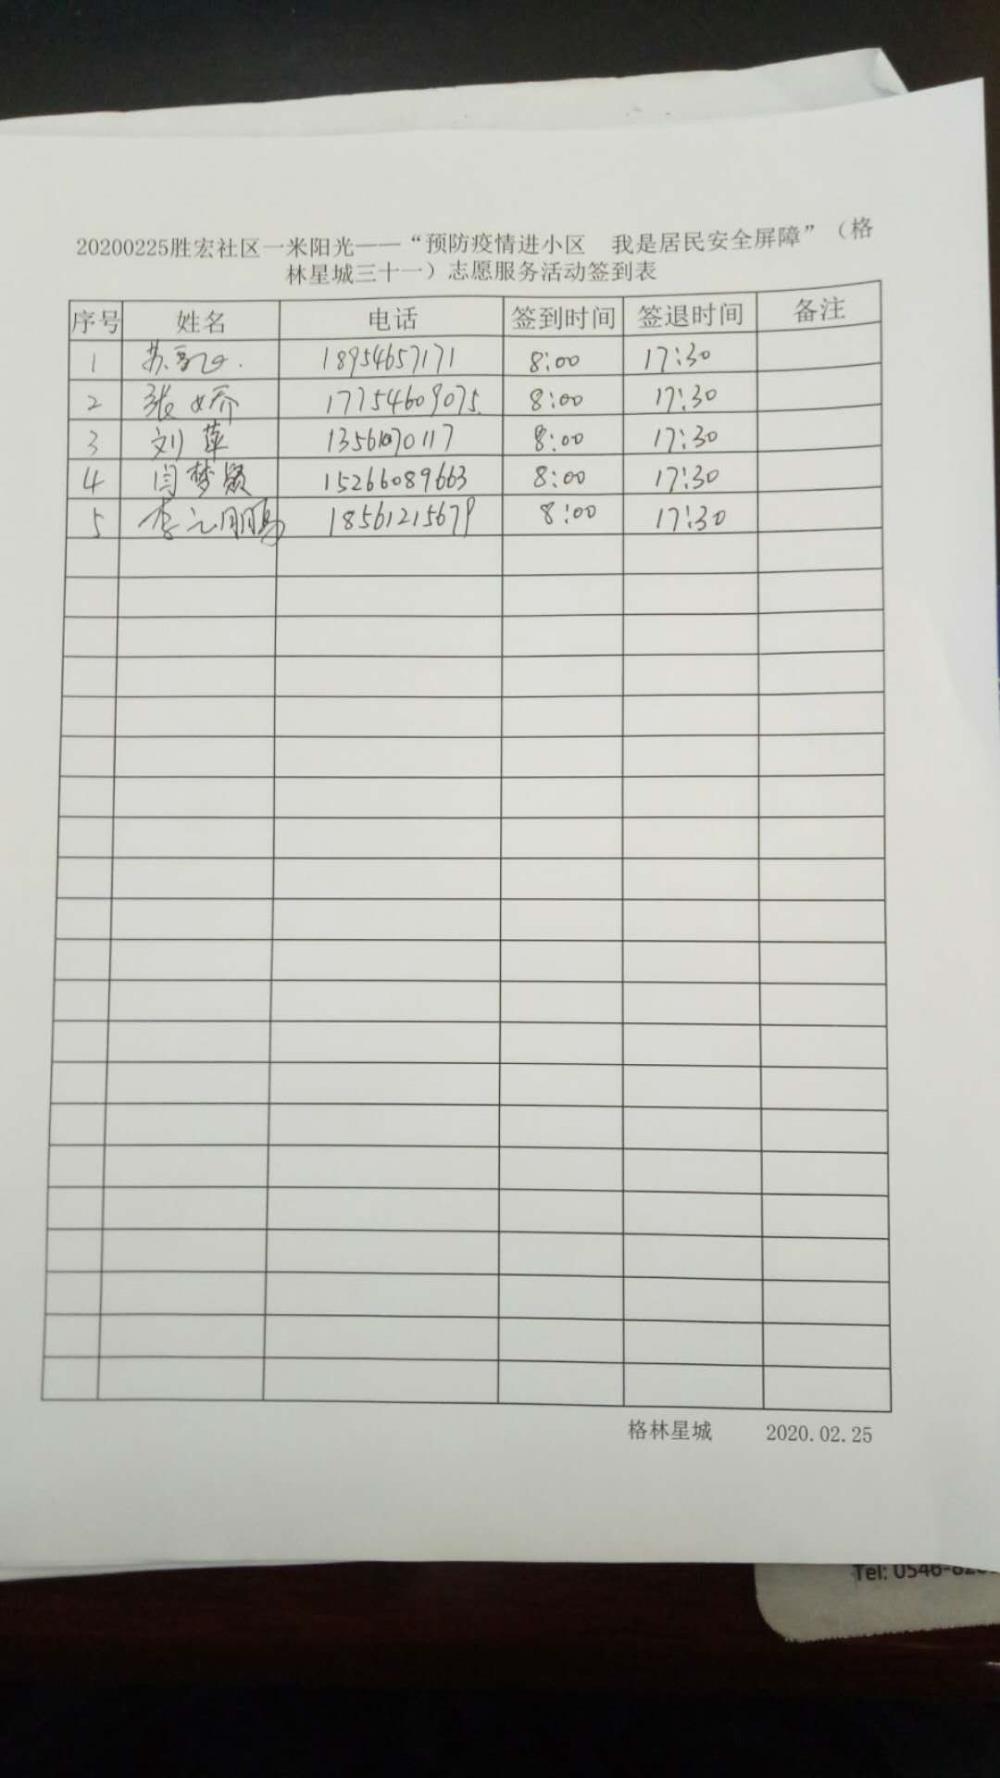 20200225胜宏社区一米阳光——“预防疫情进小区 我是居民安全屏障”（格
林星城三十一）志愿服务活动签到表
序号 姓名 电话 签到时间 签退时间 备注
1 苏 18954657171 8:00 17:30
2 张娇 17754609075 8:00 17:30
3 刘萍 13561070117 8:00 17:30
4 闫梦颖 15266089663 8:00 17:30
5 李元鹏 18561215679 8:00 17:30
格林星城 2020.02.25
Tel: 0546-82